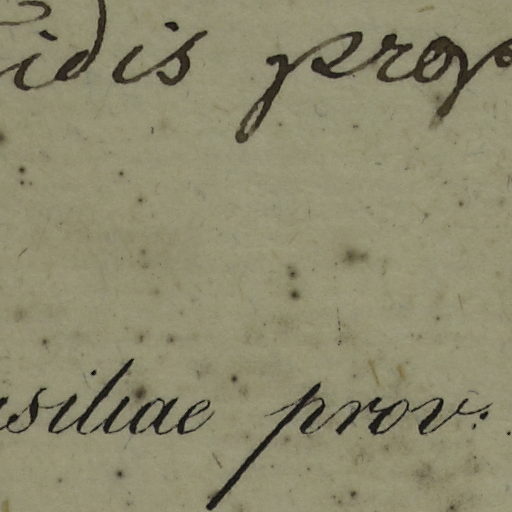 idis prop
siliae prov.